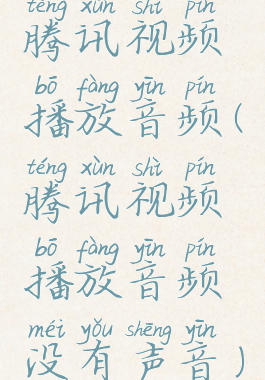 téng xùn shì pín
腾讯视频
bō fàng yīn pín
播放音频(
téng xùn shì pín
腾讯视频
bō fàng yīn pín
播放音频
méi yǒu shēng yīn
没有声音)